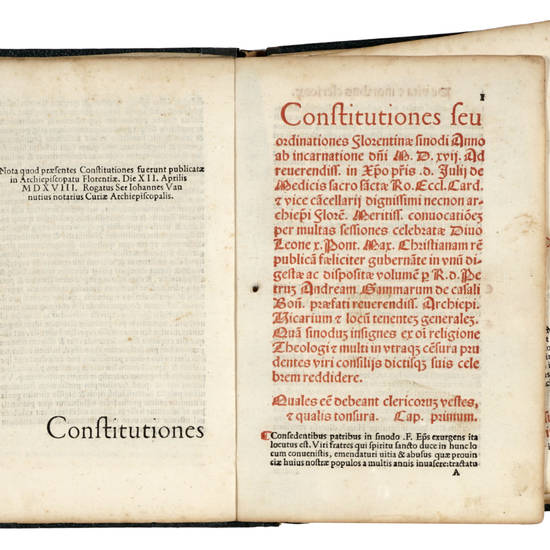 Nota quod præsentes Constitutiones fuerunt publicatæ
in Archiepiscopatu Florentiæ. Die XII. Aprilis
MDXVIII. Rogatus Ser Iohannes Van
nutius notarius Curiæ Archiepiscopalis.
Constitutiones
1
Constitutiones seu
ordinationes Florentinæ sinodi Anno
ab incarnatione dñi M. D. xvij. Ad
reuerendiss. in Xpo p̃ris. d. Julij de
Medicis sacro sactæ Ro. Eccl. Card.
& vice cãcellarij dignissimi necnon ar
chiep̃i Florẽ. Meritiss. conuocatiõeʒ
per multas sessiones celebratæ Diuo
Leone x. Pont. Max. Christianam rẽ
publicã fæliciter gubernãte in vnũ di
gestæ ac dispositæ volumẽ ꝑ R. d. Pe
truʒ Andream Gammarum de casali
Boñ. præfati reuerendiss. Archiepi.
Vicarium & locũ tenentes generaleʒ.
Quã sinoduʒ insignes ex oĩ religione
Theologi & multi in vtraqʒ cẽsura pru
dentes viri consilijs dictisqʒ suis cele
brem reddidere.
Quales eẽ debeant clericoruʒ vestes,
& qualis tonsura. Cap. primum.
Consedentibus patribus in sinodo .F. Ep̃s exurgens ita
locutus est. Viri fratres qui spiritu sancto duce in hunc lo
cum conuenistis, emendaturi uitia & abusus quæ prouin
ciæ huius nostræ populos a multis annis inuasere: tractatu
A